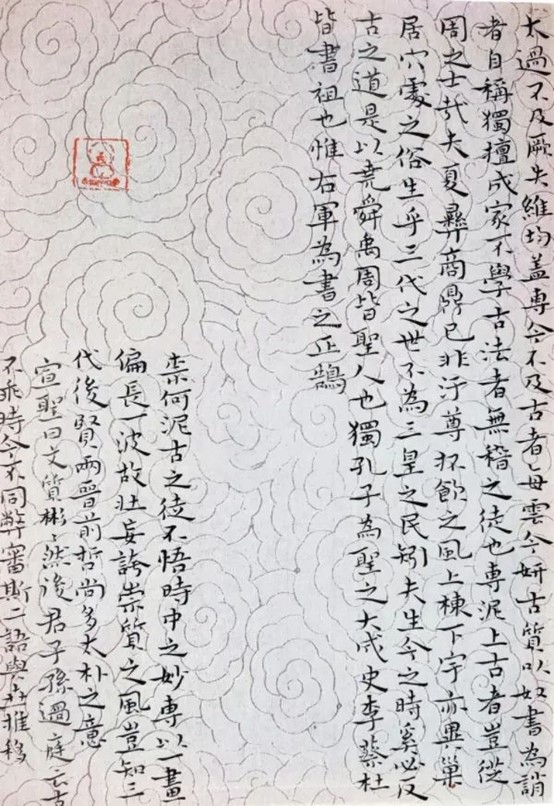 太過不及厥失維均盖專今不及古者每雲今妍古質以奴書為誚
者自稱獨擅成家不學古法者無稽之徒也專泥上古者豈從
周之士哉夫夏彝商鼎已非汙尊抔飲之風上棟下宇亦異巢
居穴處之俗生乎三代之世不為三皇之民矧夫生今之時奚必反
古之道是以堯舜禹周皆聖人也獨孔子為聖之大成史李蔡杜
皆書祖也惟右軍為書之正鵠
柰何泥古之徒不悟時中之妙專以一畫
偏長一波故壯妄誇崇質之風豈知三
代後賢兩晉前哲尚多太朴之意
宣聖曰文質彬〻然後君子孫過庭云古
不乖時今不同弊審斯二語與世推移